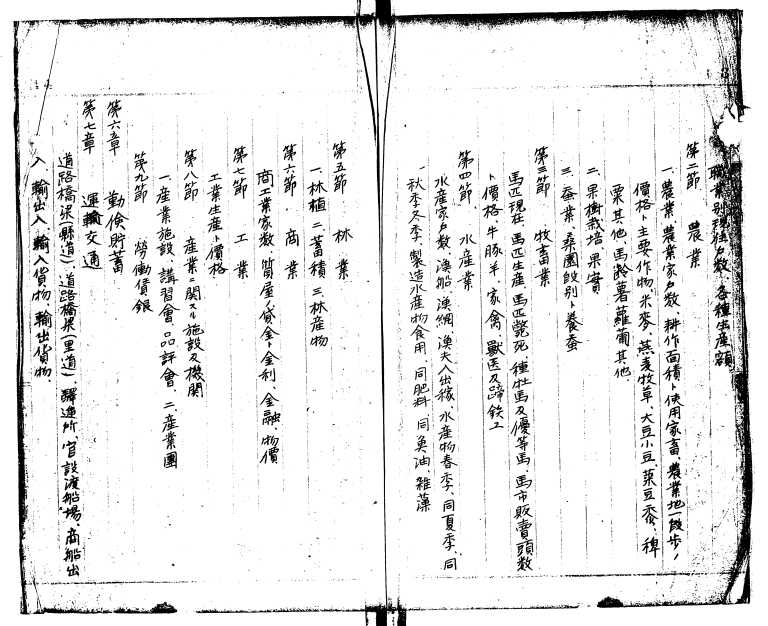 職業別現住戸数、各種生産額
第二節　農業
一、農業、農業家戸数、耕作面積ト使用家畜、農業地一段歩ノ
價格ト主要作物、米麥、燕麦牧草、大豆小豆、菜豆黍、稗
粟其他、馬齢薯蘿蔔其他、
二、果樹栽培、果實
三、蚕業、桑園段別ト養蚕
第三節　牧畜業
馬匹現在、馬匹生産、馬匹斃死、種牡馬及優等馬、馬市販賣頭数
ト價格、牛豚羊、家禽、獸医及蹄鉄工
第四節　水産業
水産家戸数、漁船、漁網、漁夫入出稼、水産物春季、同夏季、同
秋季冬季、製造水産物食用、同肥料、同魚油、雑藻
第五節　林業
一、林植　二、蓄積　三、林産物
第六節　商業
商工業家数、質屋ノ貸金ト金利、金融、物價
第七節　工業
工業生産ト價格
第八節　産業ニ関スル施設及機関
一、産業施設、講習會、品評會、二、産業團
第九節　勞働賃銀
第六章　勤倹貯蓄
第七章　運輸交通
道路橋梁（縣道）、道路橋梁（里道）、驛逓所、官設渡船場、商船出
入、輸出入、輸入貨物、輸出貨物、